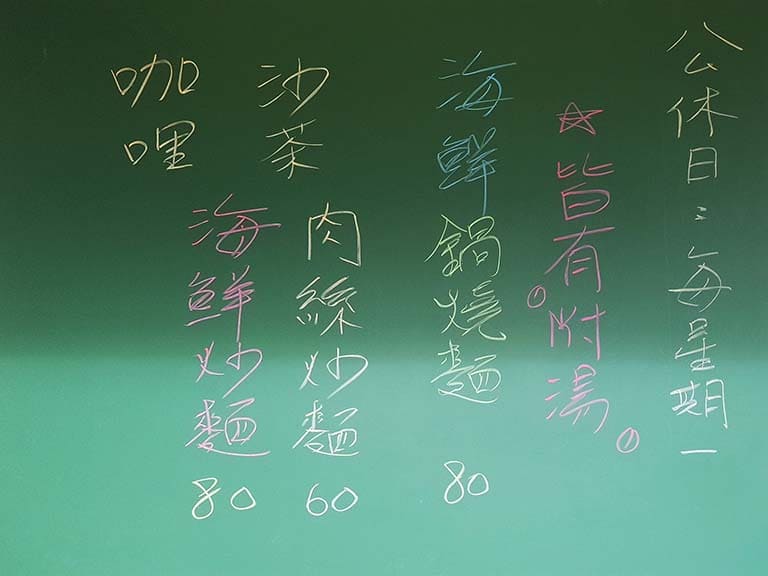 公休日：每星期一
☆皆有附湯
海鮮鍋燒麵 80
沙茶
咖哩
肉絲炒麵 60
海鮮炒麵 80